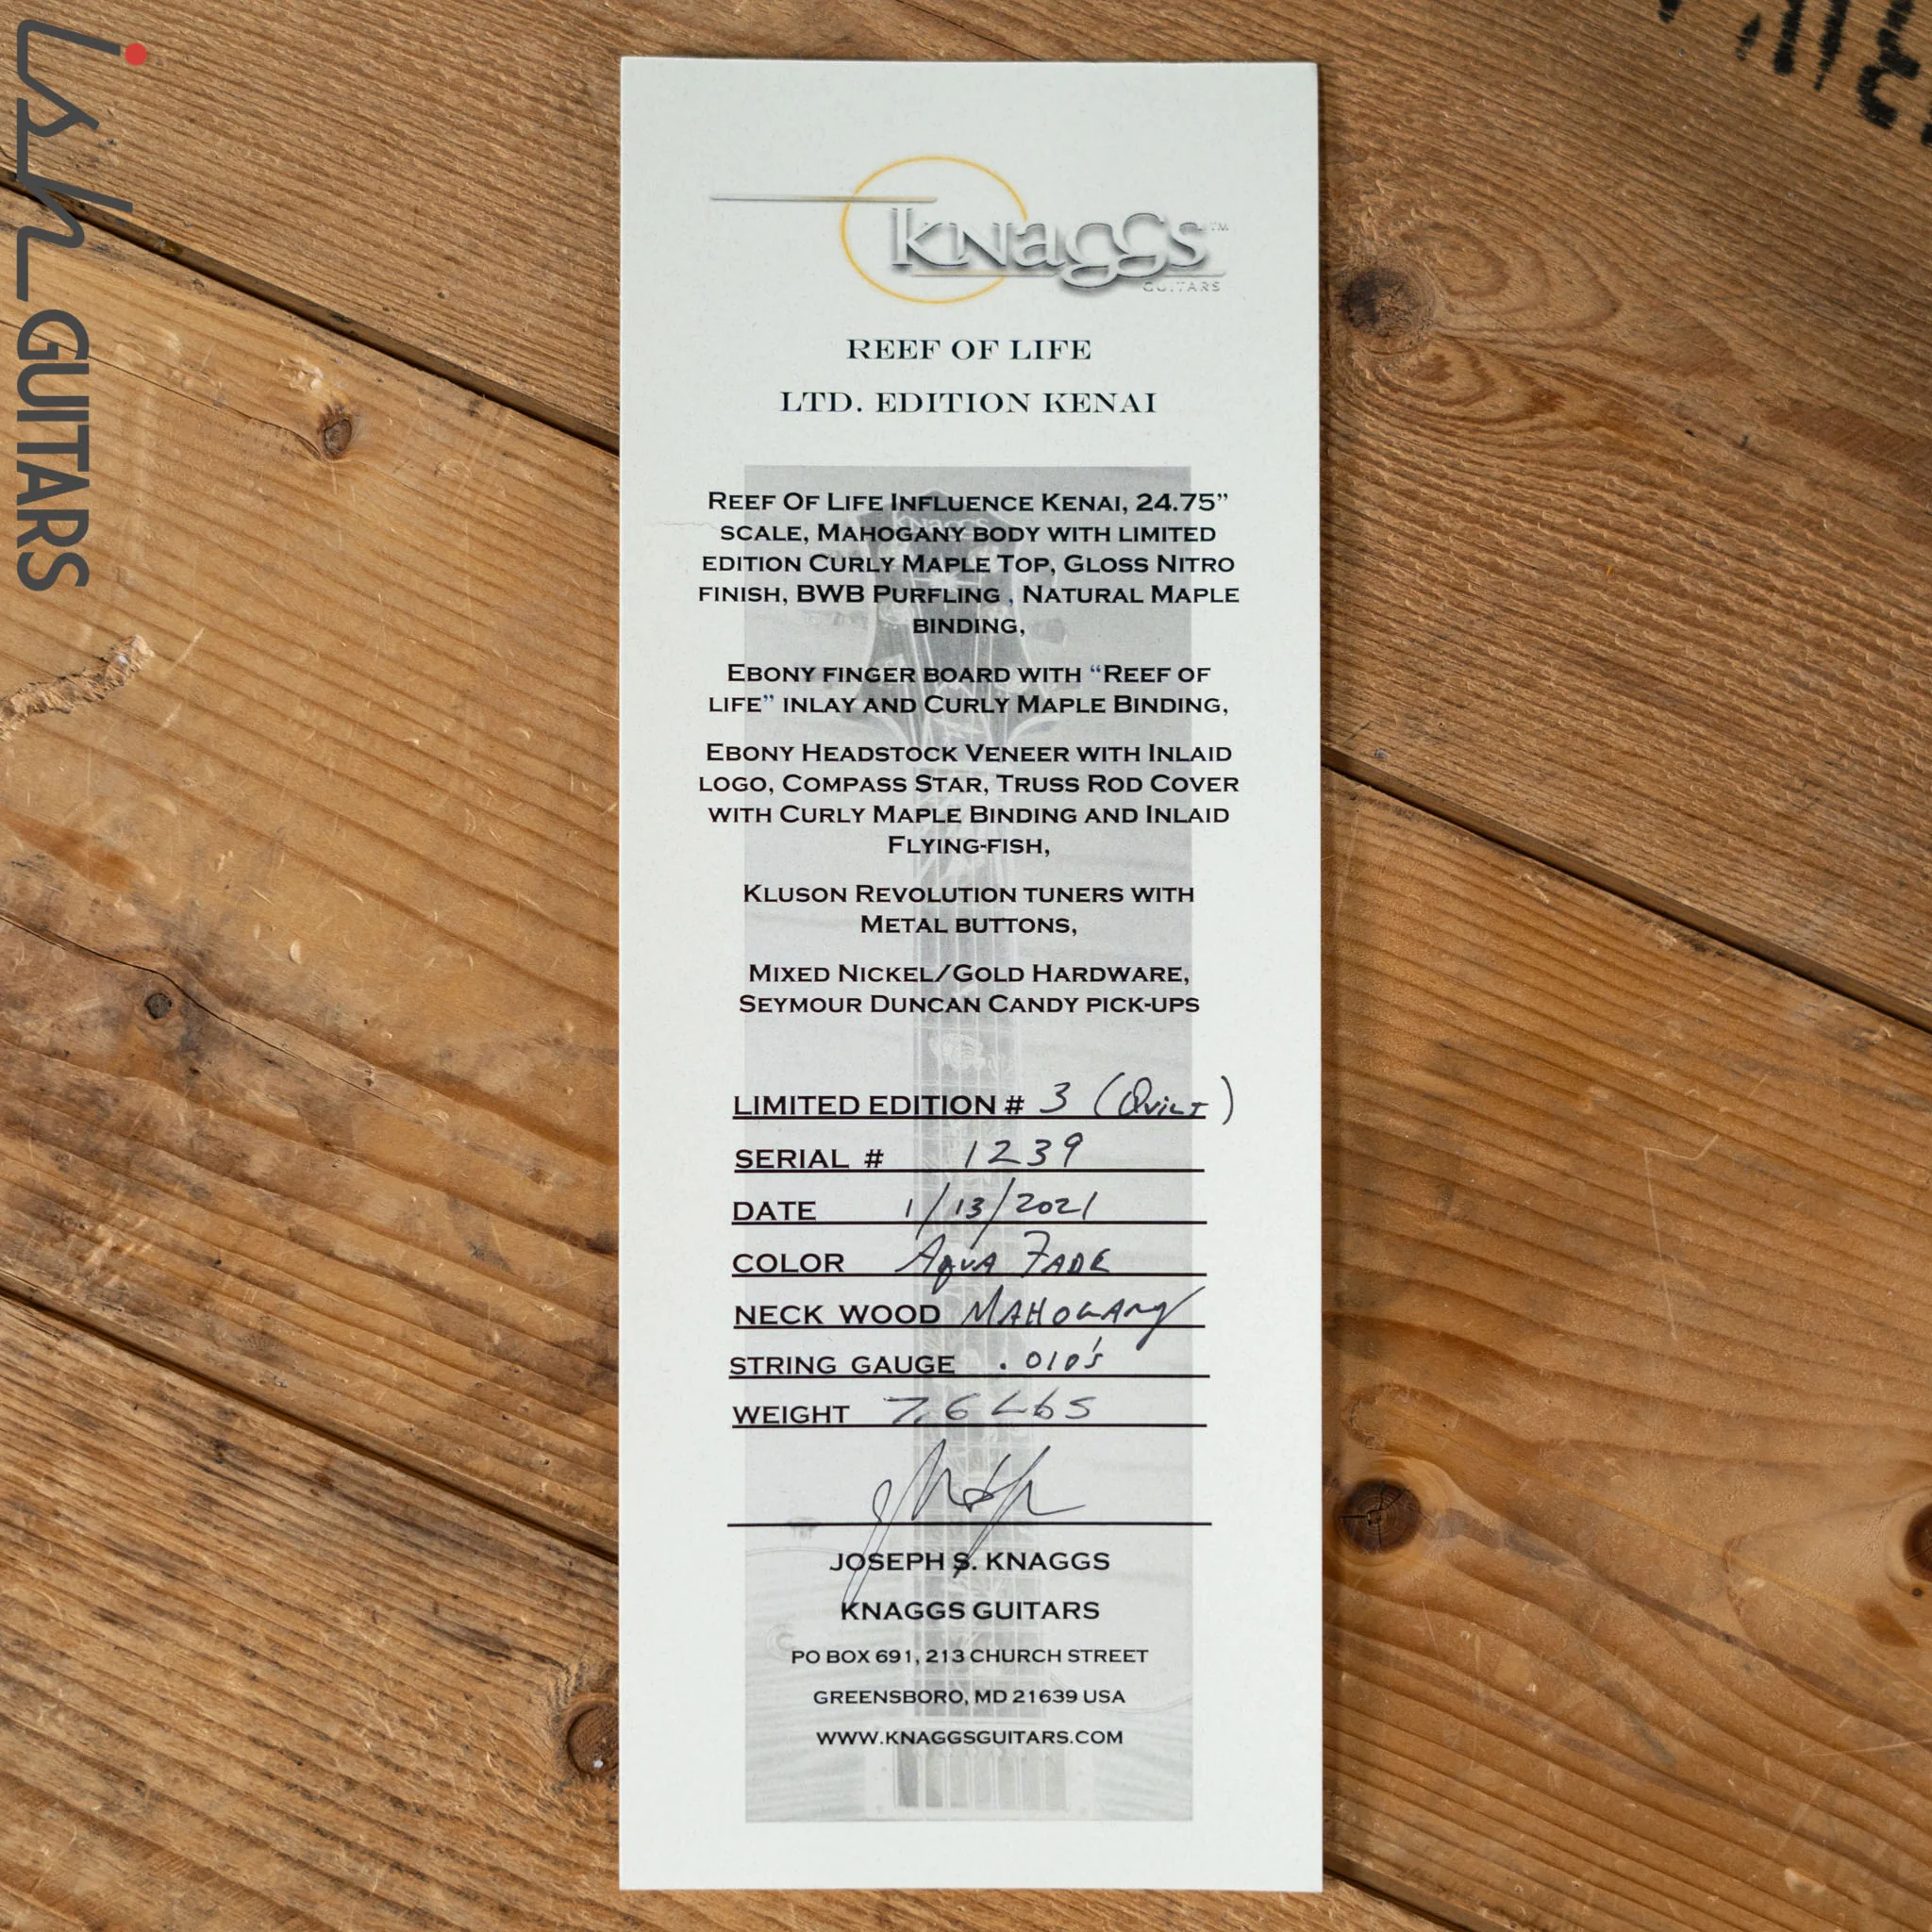 ish GUITARS
KNAGGS™
GUITARS
REEF OF LIFE
LTD. EDITION KENAI
REEF OF LIFE INFLUENCE KENAI, 24.75”
SCALE, MAHOGANY BODY WITH LIMITED
EDITION CURLY MAPLE TOP, GLOSS NITRO
FINISH, BWB PURFLING , NATURAL MAPLE
BINDING,
EBONY FINGER BOARD WITH “REEF OF
LIFE” INLAY AND CURLY MAPLE BINDING,
EBONY HEADSTOCK VENEER WITH INLAID
LOGO, COMPASS STAR, TRUSS ROD COVER
WITH CURLY MAPLE BINDING AND INLAID
FLYING-FISH,
KLUSON REVOLUTION TUNERS WITH
METAL BUTTONS,
MIXED NICKEL/GOLD HARDWARE,
SEYMOUR DUNCAN CANDY PICK-UPS
LIMITED EDITION # 3 (QUILT)
SERIAL # 1239
DATE 1/13/2021
COLOR AQUA FADE
NECK WOOD MAHOGANY
STRING GAUGE .010's
WEIGHT 7.6 Lbs
JOSEPH S. KNAGGS
KNAGGS GUITARS
PO BOX 691, 213 CHURCH STREET
GREENSBORO, MD 21639 USA
WWW.KNAGGSGUITARS.COM